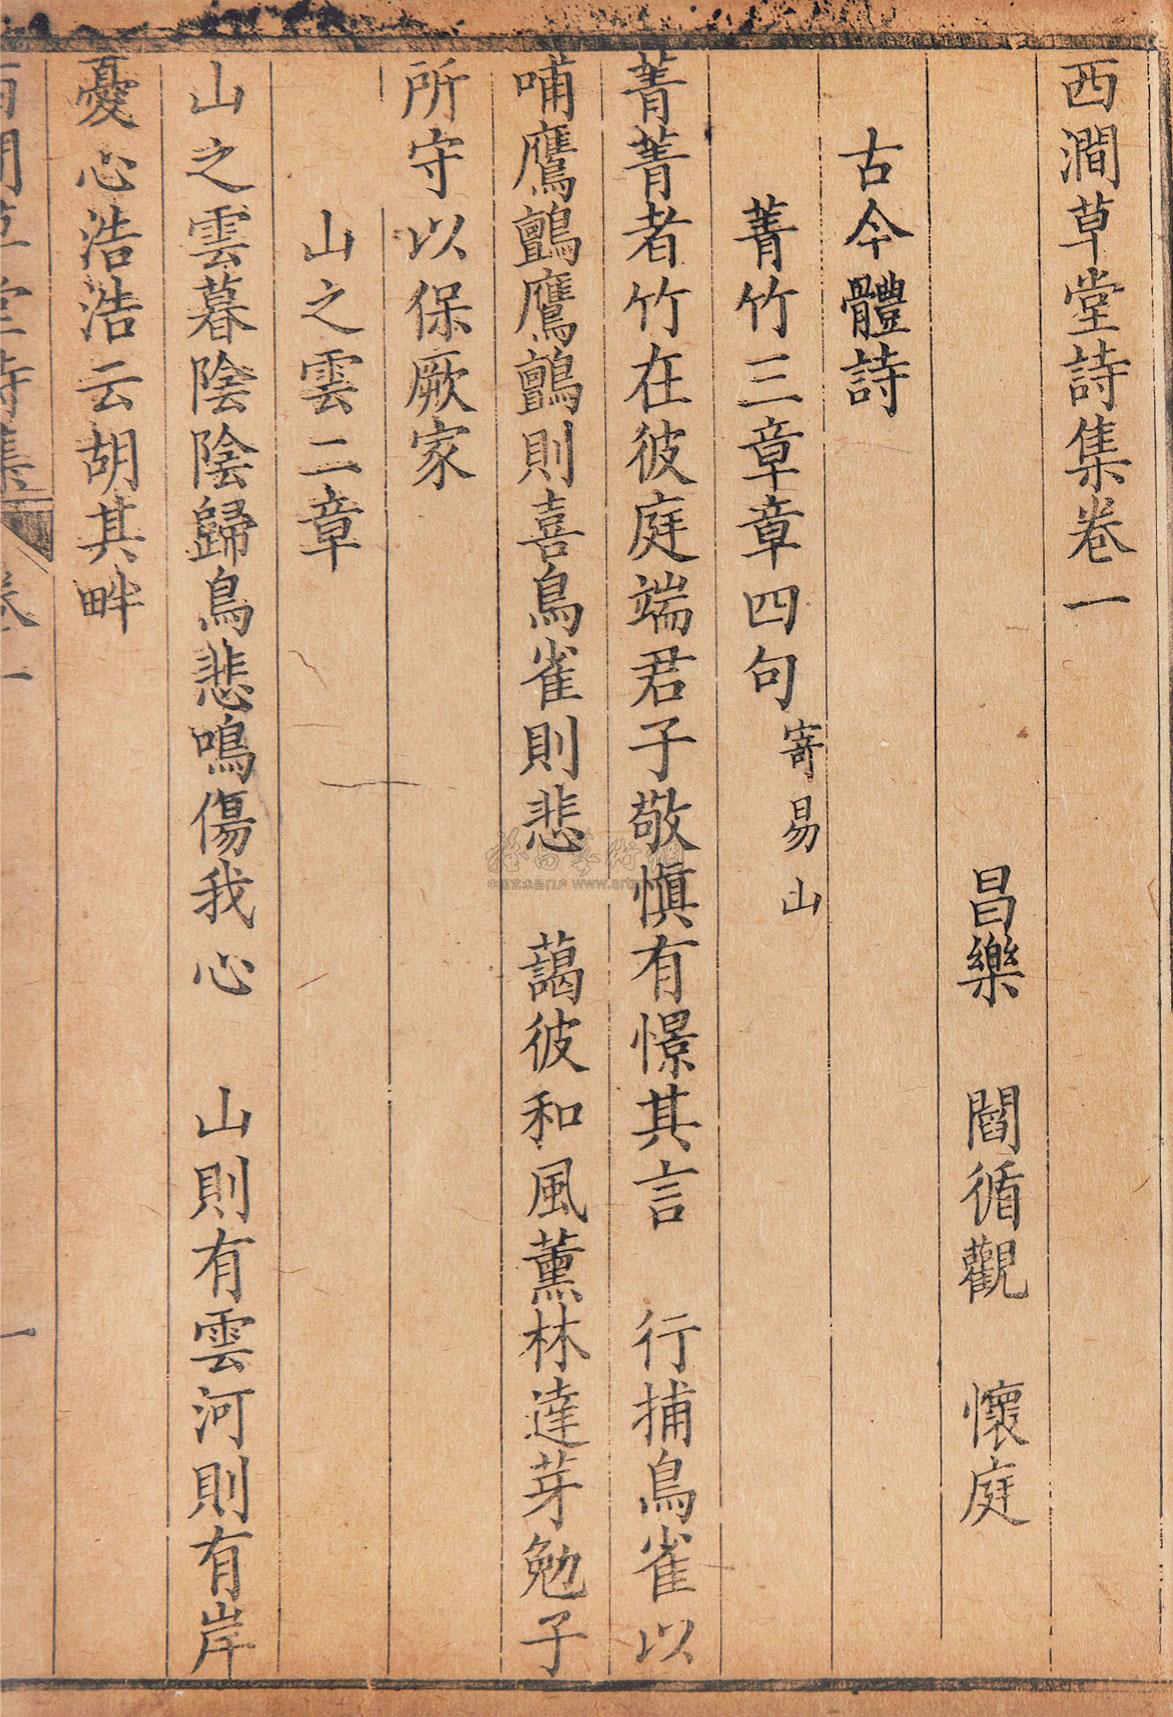 西澗草堂詩集卷一
昌樂 閻循觀 懷庭
古今體詩
菁竹三章章四句 寄易山
菁菁者竹在彼庭端君子敬慎有憬其言 行捕鳥雀以
哺鷹鸇鷹鸇則喜鳥雀則悲 藹彼和風薰林達芽勉子
所守以保厥家
山之雲二章
山之雲暮陰陰歸鳥悲鳴傷我心 山則有雲河則有岸
憂心浩浩云胡其畔
西澗草堂詩集 卷一 一